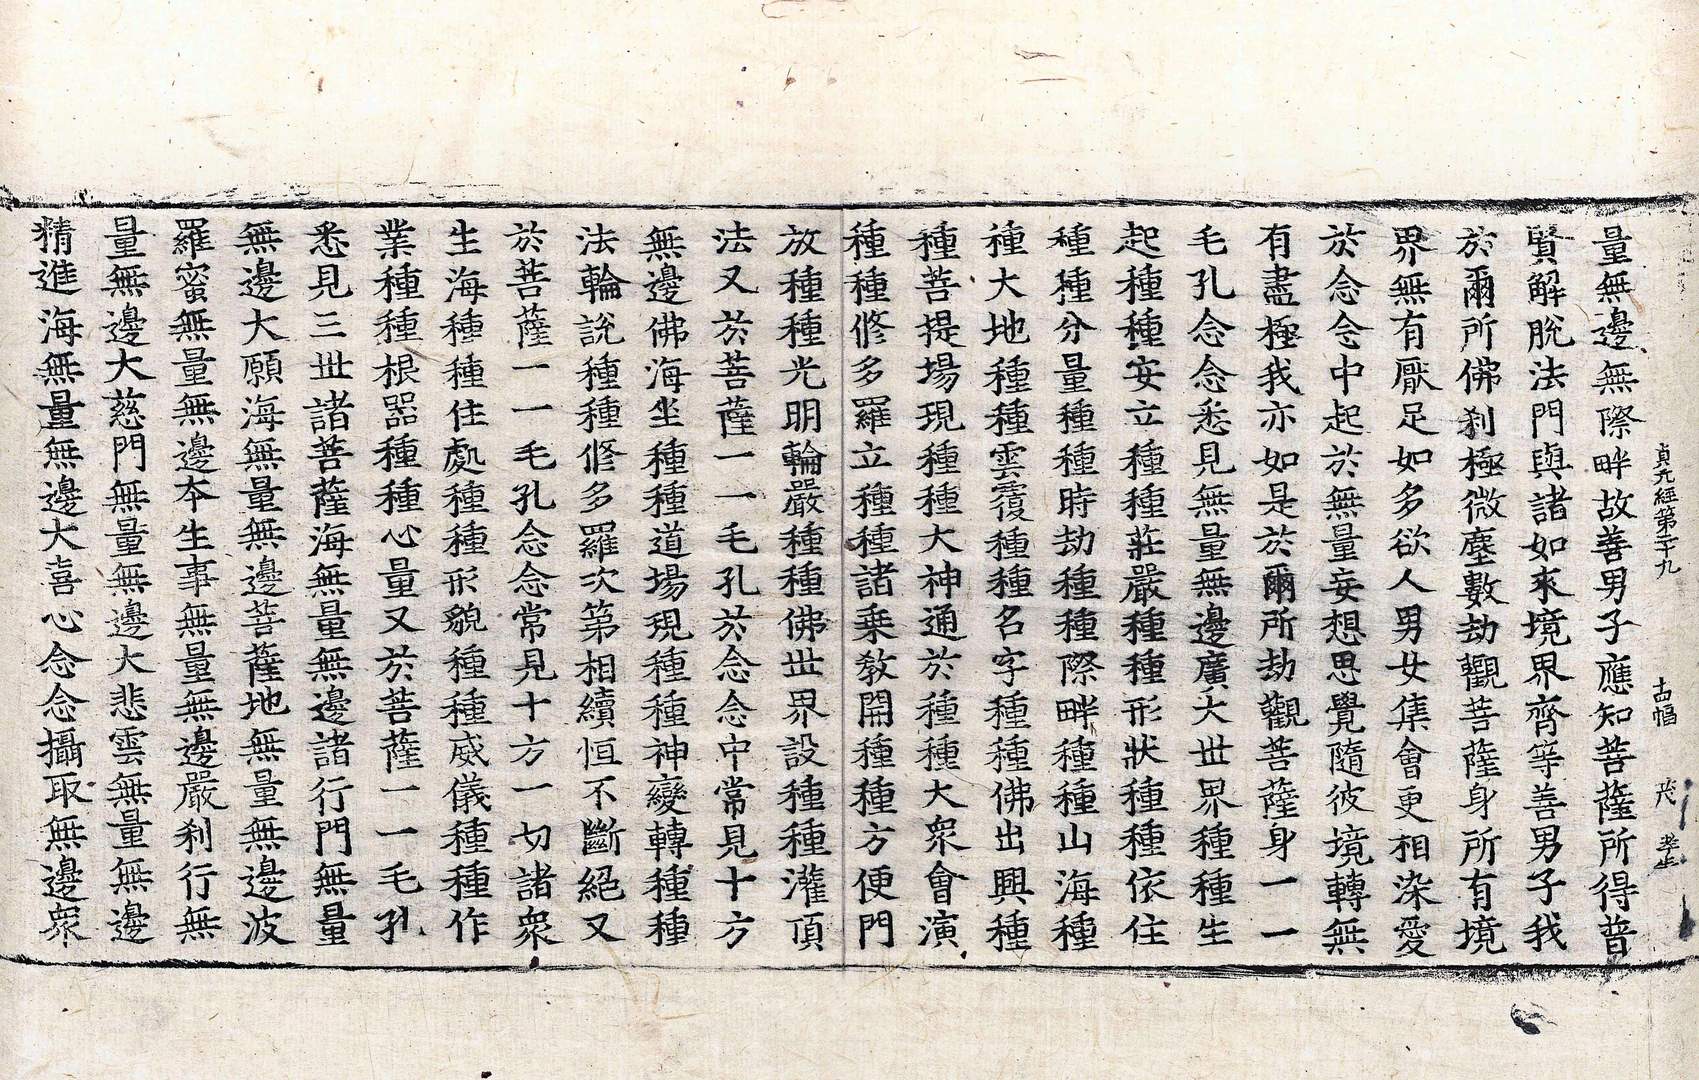 貞元經第二十九 十四幅 茂
量無邊無際畔故善男子應知菩薩所得普
賢解脫法門與諸如來境界齊等善男子我
於爾所佛剎極微塵數劫觀菩薩身所有境
界無有厭足如多欲人男女集會更相染愛
於念念中起於無量妄想思覺隨彼境轉無
有盡極我亦如是於爾所劫觀菩薩身一一
毛孔念念悉見無量無邊廣大世界種種生
起種種安立種種莊嚴種種形狀種種依住
種種分量種種時劫種種際畔種種山海種
種大地種種雲覆種種名字種種佛出興種
種菩提場現種種大神通於種種大眾會演
種種修多羅立種種諸乘教開種種方便門
放種種光明輪嚴種種佛世界設種種灌頂
法又於菩薩一一毛孔於念念中常見十方
無邊佛海坐種種道場現種種神變轉種種
法輪說種種修多羅次第相續恒不斷絕又
於菩薩一一毛孔念念常見十方一切諸眾
生海種種住處種種形貌種種威儀種種作
業種種根器種種心量又於菩薩一一毛孔
悉見三世諸菩薩海無量無邊諸行門無量
無邊大願海無量無邊菩薩地無量無邊波
羅蜜無量無邊本生事無量無邊嚴剎行無
量無邊大慈門無量無邊大悲雲無量無邊
精進海無量無邊大喜心念念攝取無邊眾